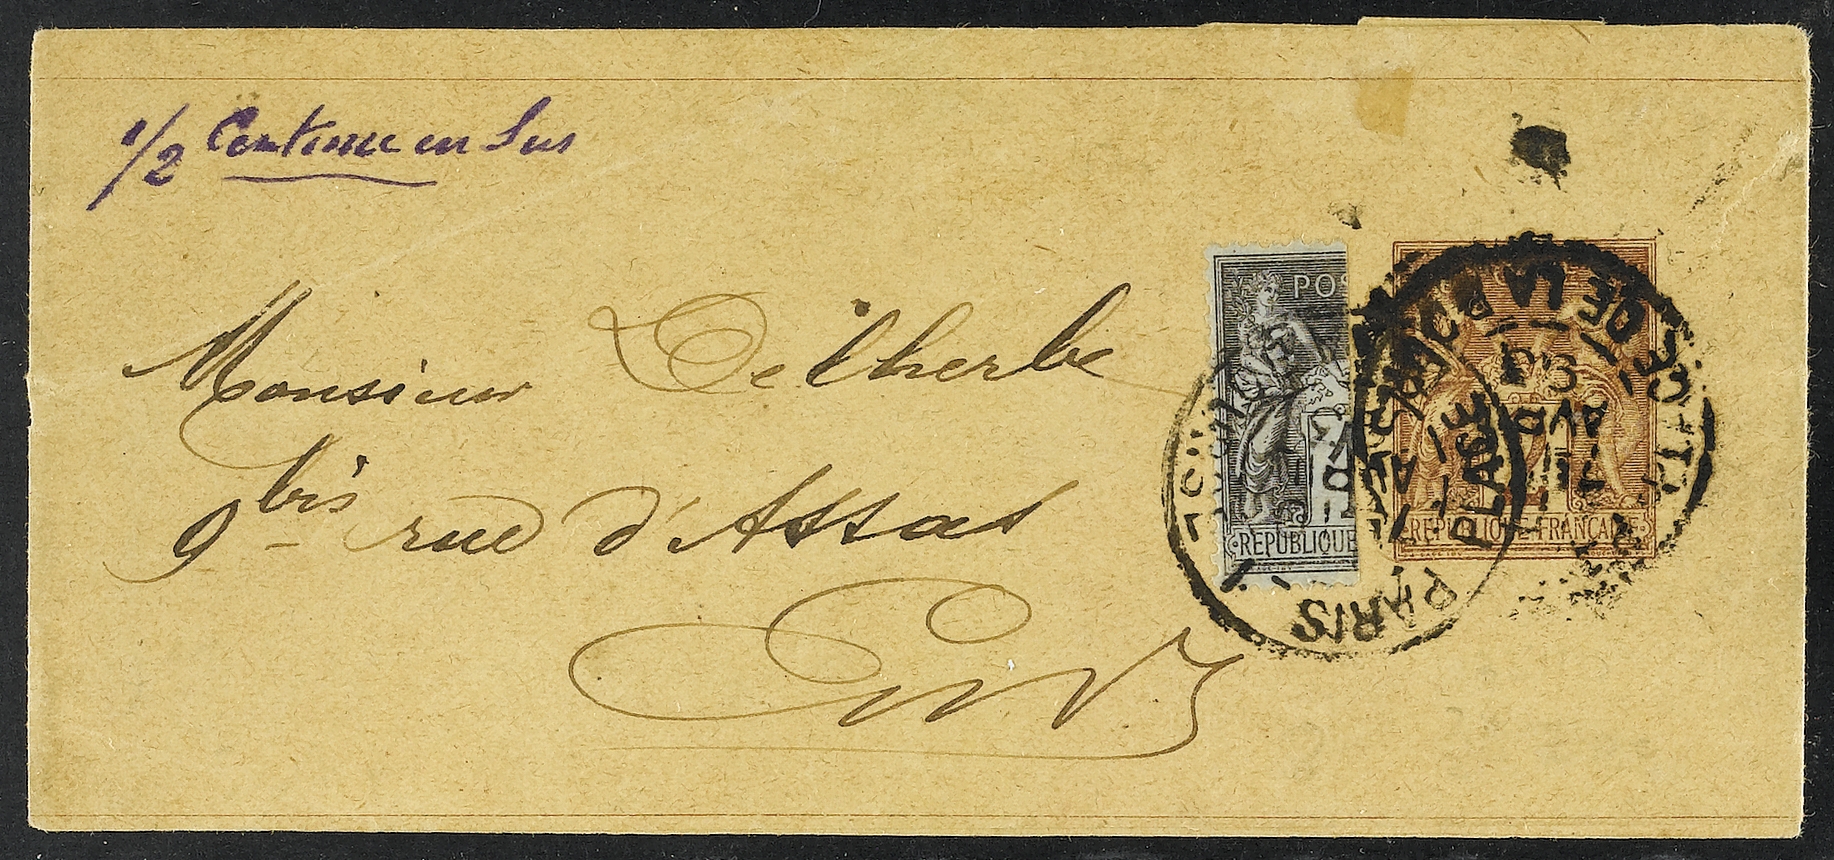 1/2 Centime en Sus
Monsieur Delherbe
9 bis rue d'Assas
E.V.
POS
REPUBLIQUE
REPUBLIQUE FRANÇAISE
PLACE DE LA BOURSE
AVR
94
PARIS